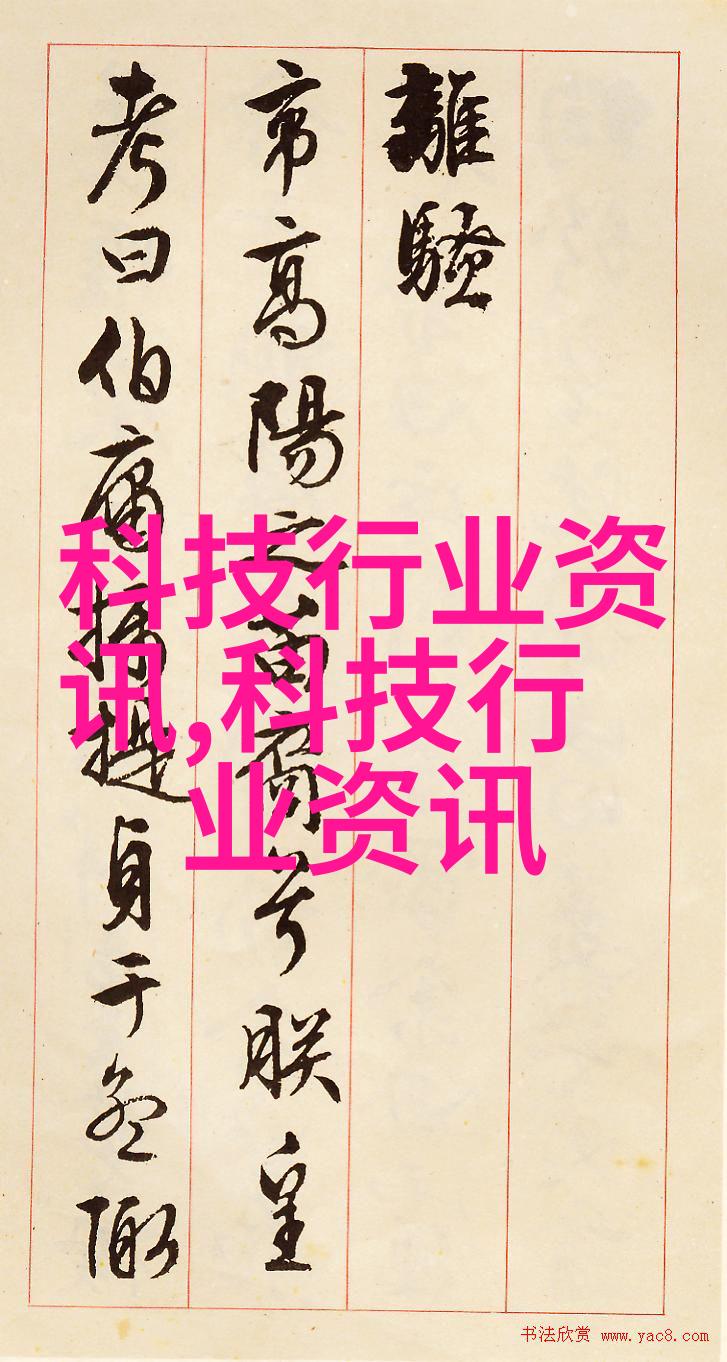 離騷
帝高陽之苗裔兮朕皇
考曰伯庸攝提貞于孟陬
科技行业资
讯,科技行
业资讯
书法欣赏 www.yac8.com